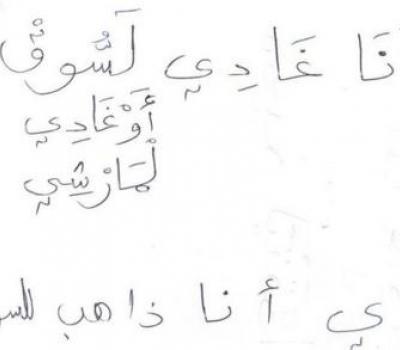 نَا غَادِي لَسُّوقْ
أَوْ غَادِي
لْمَارْشِي
ي أنا ذاهب للسو